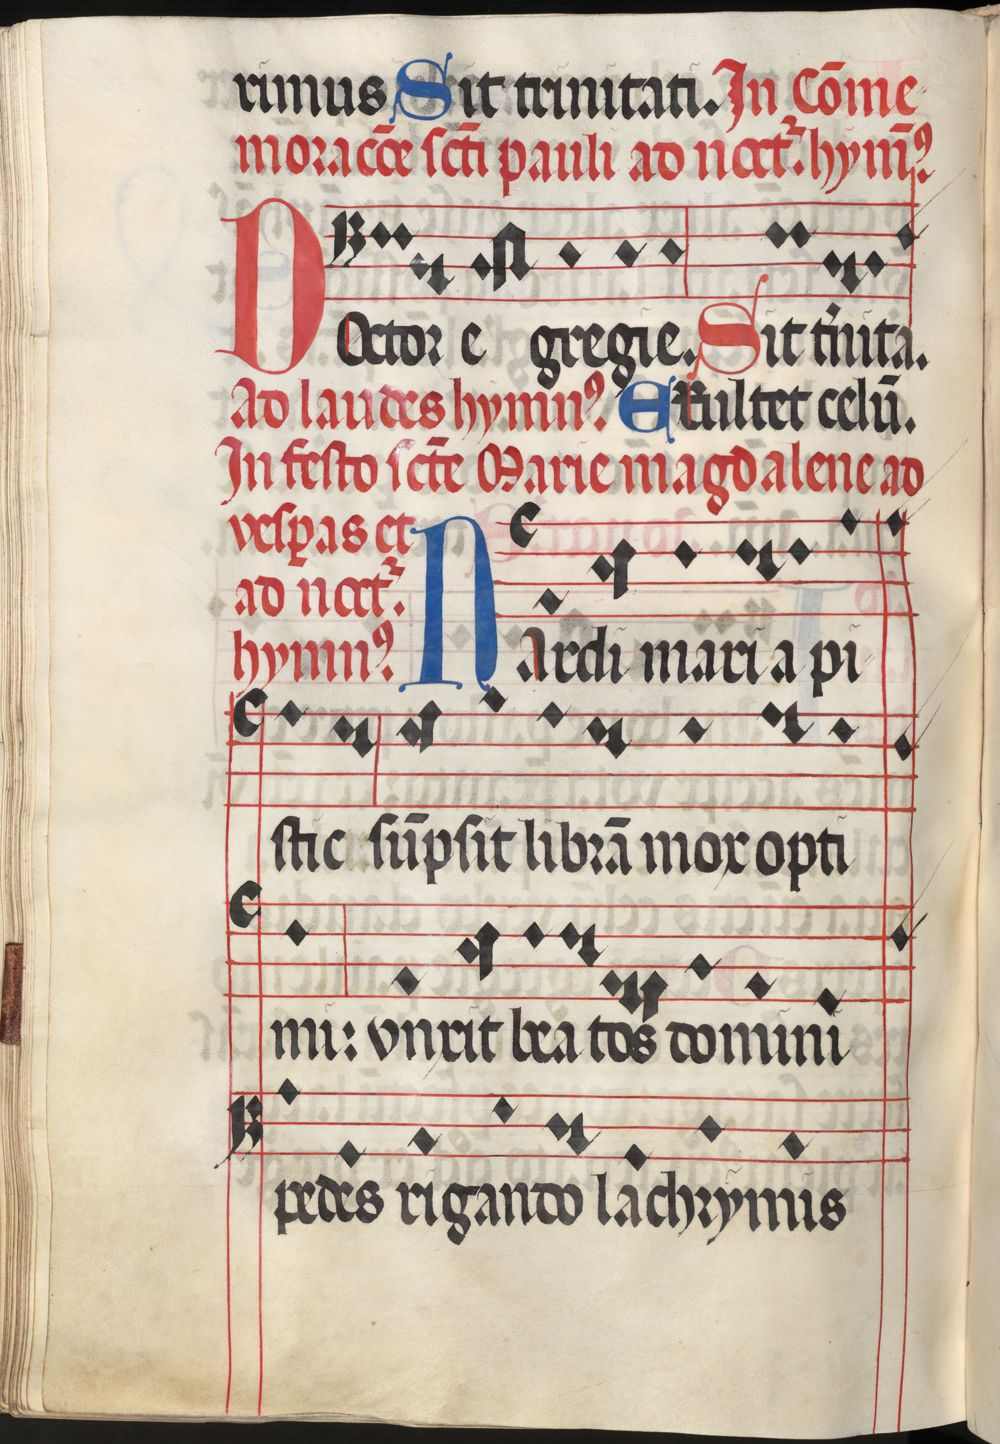 rimus Sit trinitati. In Cōme
moracōe scti pauli ad noct. hymꝰ
DOctor e gregie. Sit t'nita.
Ad laudes hymnꝰ Exultet celū.
In festo scte Marie magdalene ad
vesꝑas et
ad noct.
hymnꝰ
NArdi maria pi
stic sūpsit librā mox opti
mi: vnxit beatos domini
pedes rigando lachrymis